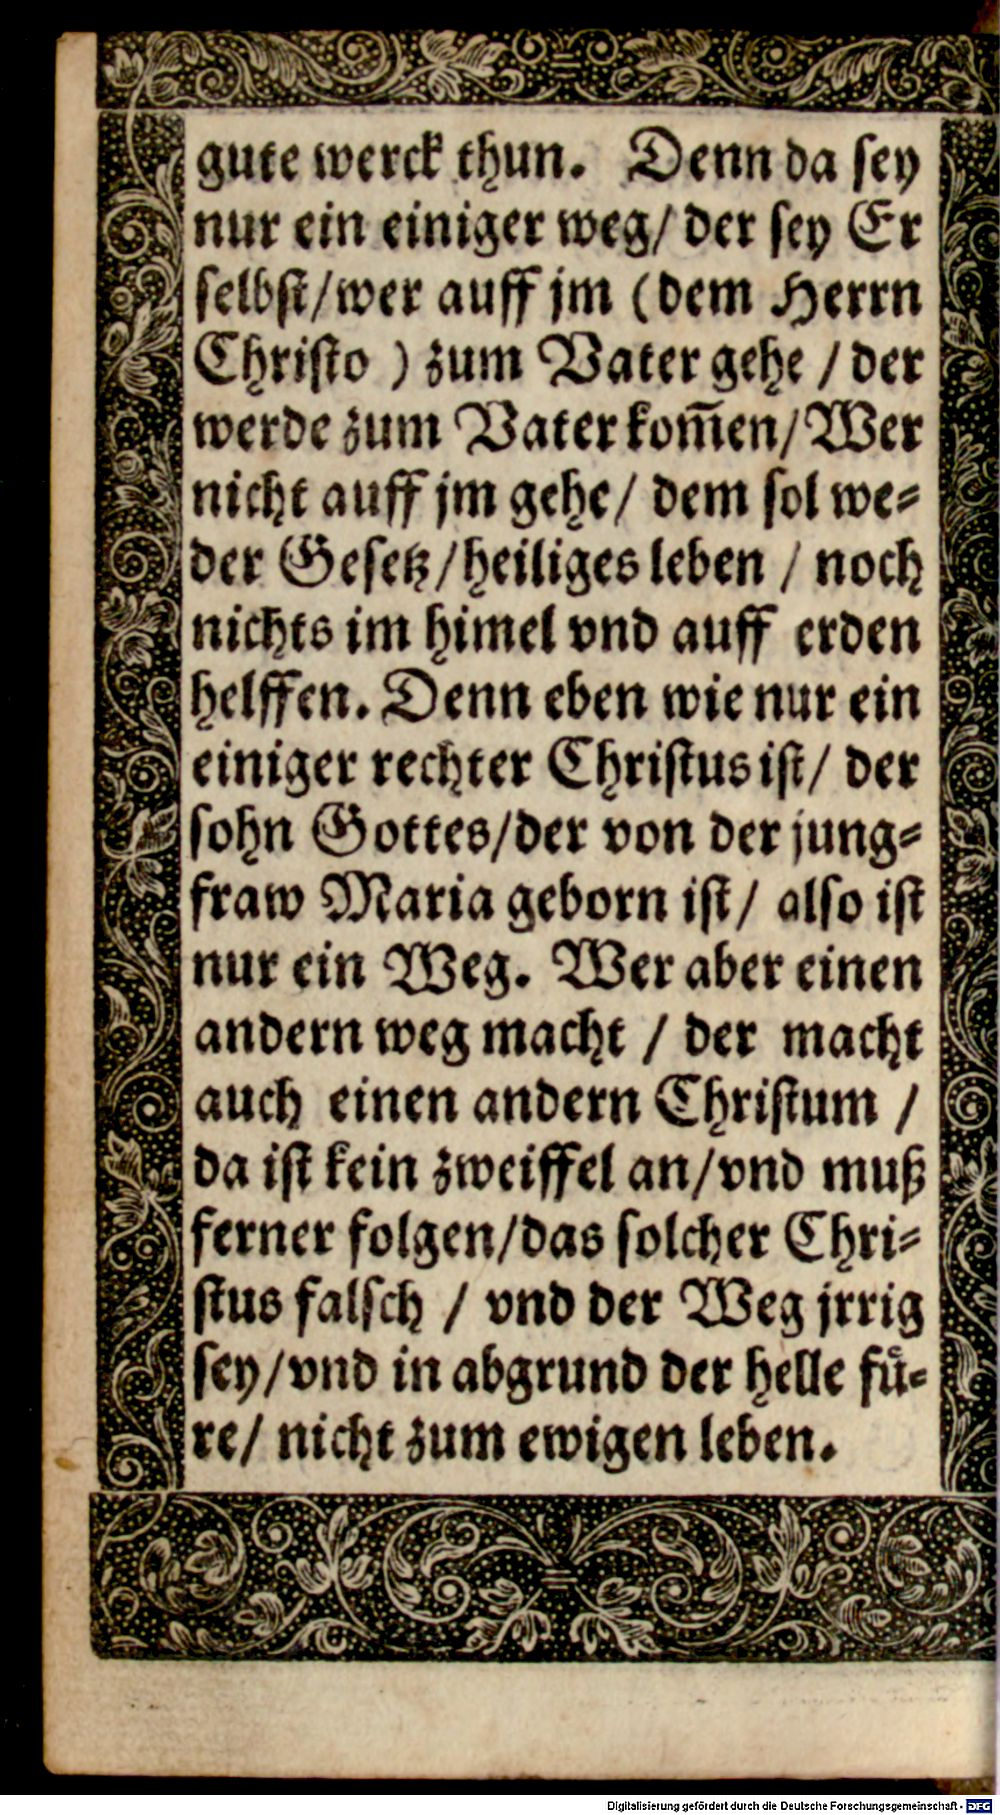 gute werck thun. Denn da sey
nur ein einiger weg/ der sey Er
selbst/wer auff jm (dem Herrn
Christo ) zum Vater gehe / der
werde zum Vater kom̅en/Wer
nicht auff jm gehe/ dem sol we⸗
der Gesetz/heiliges leben / noch
nichts im himel vnd auff erden
helffen. Denn eben wie nur ein
einiger rechter Christus ist/ der
sohn Gottes/der von der jung⸗
fraw Maria geborn ist/ also ist
nur ein Weg. Wer aber einen
andern weg macht / der macht
auch einen andern Christum /
da ist kein zweiffel an/vnd muß
ferner folgen/das solcher Chri⸗
stus falsch / vnd der Weg jrrig
sey/vnd in abgrund der helle fuͤ⸗
re/ nicht zum ewigen leben.
Digitalisierung gefördert durch die Deutsche Forschungsgemeinschaft - DFG